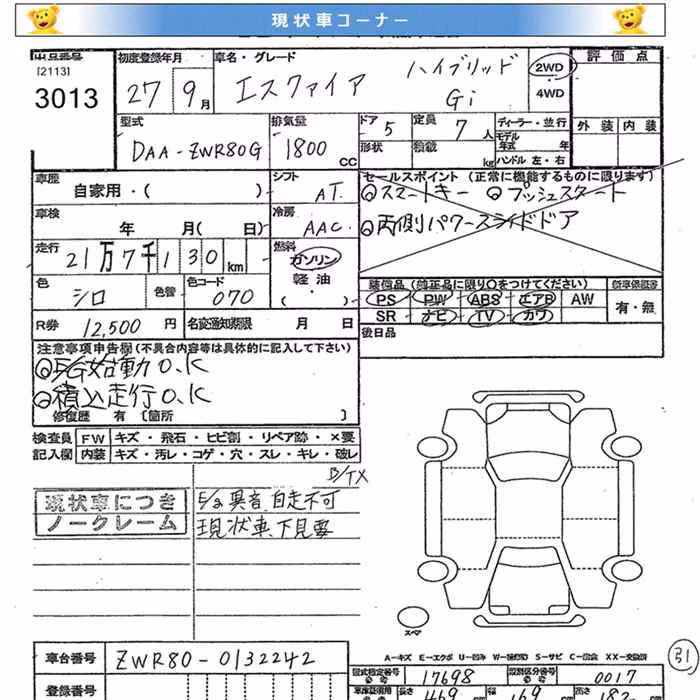 現状車コーナー
出品番号
[2113]
3013
初度登録年月
27年9月
車名・グレード
エスクァイア ハイブリッド Gi
2WD
・
4WD
評価点
外装 内装
型式
DAA-ZWR80G
排気量
1800 CC
ドア 5
形状
定員 7人
積載 kg
ディーラー・並行
モデル年式 年
ハンドル 左・右
車歴
自家用・( )
シフト
AT
セールスポイント (正常に機能するものに限ります)
◎スマートキー ◎プッシュスタート
◎両側パワースライドドア
車検
年 月( 日)
冷房
AAC
走行
21万7千130km
燃料
ガソリン
軽油
・( )
色
シロ
色替
色コード
070
装備品 (純正品に限り○をつけてください)
PS PW ABS エアB AW
SR ナビ TV カワ
新車保証書
有・無
R券 12,500円
名変通知期限 月 日
後日品
注意事項申告欄 (不具合内容等は具体的に記入して下さい)
◎E/G始動O.K
◎積込走行O.K
修復歴 有 [箇所 ]
検査員 FW キズ・飛石・ヒビ割・リペア跡・×要
記入欄 内装 キズ・汚レ・コゲ・穴・スレ・キレ・破レ
B/TX
現状車につき
ノークレーム
異音 自走不可
現状車、下見要
スペア
A-キズ E-エクボ U-凹み W-補修跡 S-サビ C-腐食 XX-交換済
31
車台番号
ZWR80-0132242
登録番号
型式指定番号
17698
類別区分番号
0017
長さ
469
169
高さ
182